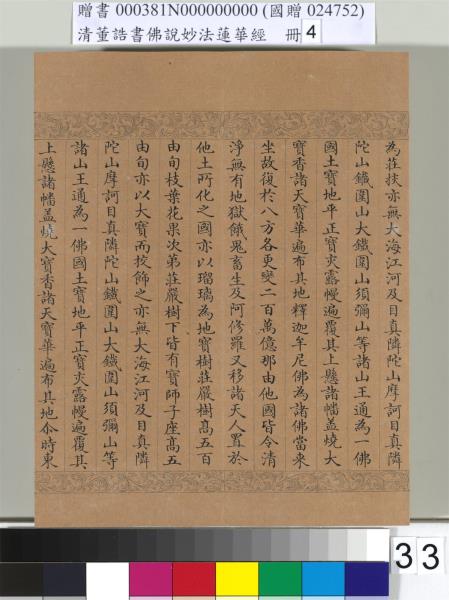 贈書 000381N000000000 (國贈 024752)
清董誥書佛說妙法蓮華經 冊 4
為莊挍亦無大海江河及目真隣陀山摩訶目真隣
陀山鐵圍山大鐵圍山須彌山等諸山王通為一佛
國土寶地平正寶交露幔遍覆其上懸諸幡盖燒大
寶香諸天寶華遍布其地釋迦牟尼佛為諸佛當來
坐故復於八方各更變二百萬億那由他國皆令清
淨無有地獄餓鬼畜生及阿修羅又移諸天人置於
他土所化之國亦以瑠璃為地寶樹莊嚴樹髙五百
由旬枝葉花果次第莊嚴樹下皆有寶師子座髙五
由旬亦以大寶而挍飾之亦無大海江河及目真隣
陀山摩訶目真隣陀山鐵圍山大鐵圍山須彌山等
諸山王通為一佛國土寶地平正寶交露幔遍覆其
上懸諸幡盖燒大寶香諸天寶華遍布其地尒時東
33